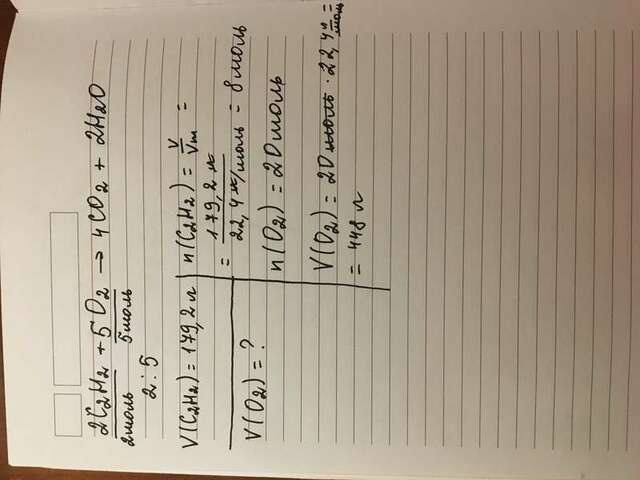 2C₂H₂ + 5O₂ → 4CO₂ + 2H₂O
2моль 5моль
2:5
V(C₂H₂) = 179,2 л
V(O₂) = ?
n(C₂H₂) = V/Vm =
= 179,2 л / 22,4 л/моль = 8 моль
n(O₂) = 20 моль
V(O₂) = 20 моль · 22,4 л/моль =
= 448 л